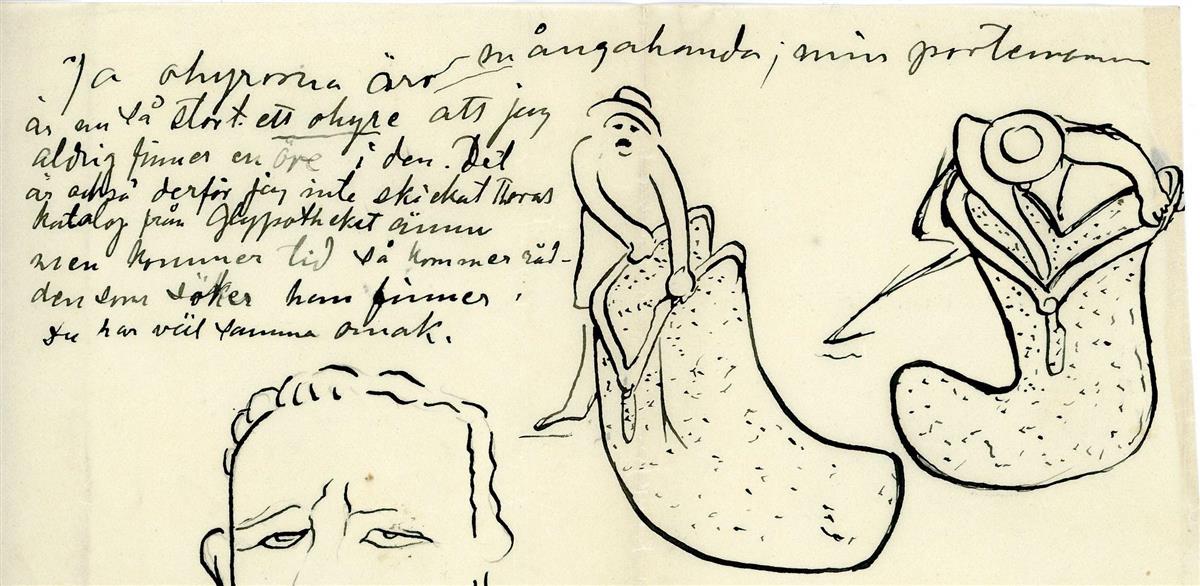 Ja ohyrorna äro mångahanda; min portemonnä
är nu så stort ett ohyre att jag
aldrig finner en öre i den. Det
är också derför jag inte skickat Thoras
katalog från Glyptotheket ännu
men kommer tid så kommer råd -
den som söker han finner.
Du har väl samma omak.